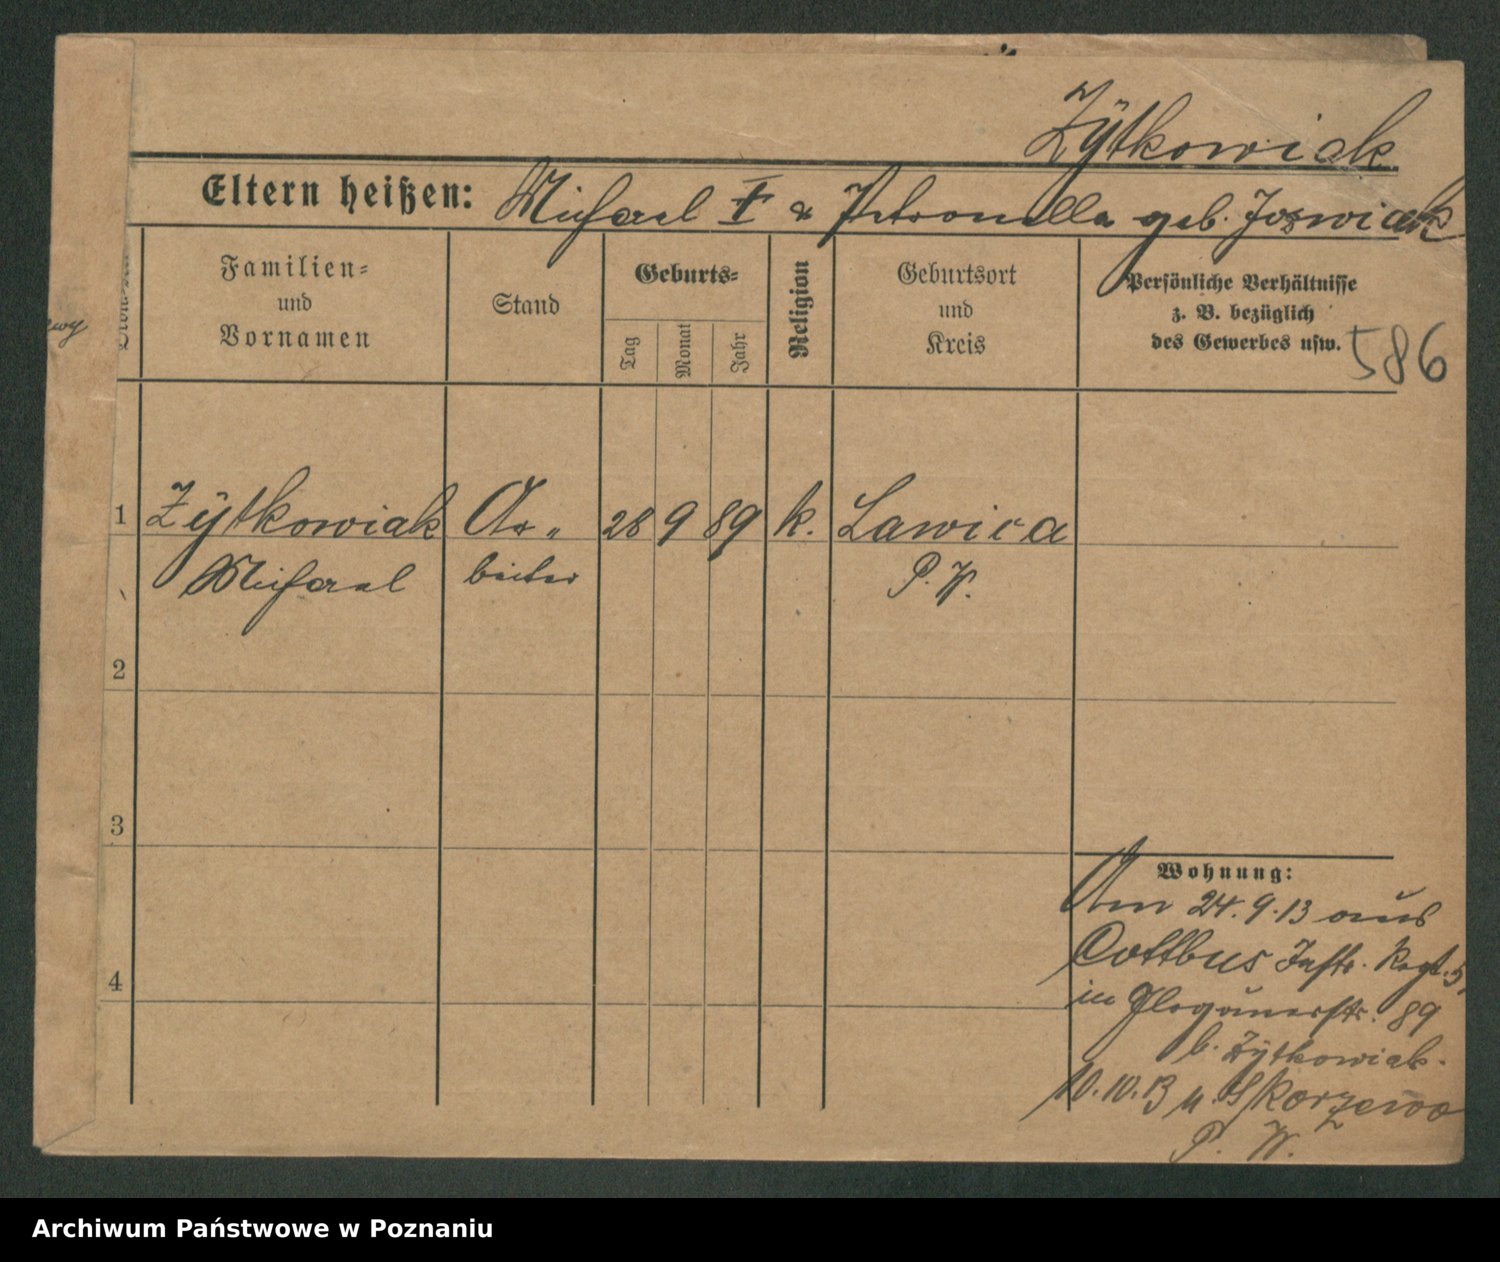 Zÿtkowiak
Eltern heißen: Michael † & Petronella geb. Jozwiak
Familien=
und
Vornamen
Stand
Geburts=
Tag
Monat
Jahr
Religion
Geburtsort
und
Kreis
Persönliche Verhältnisse
z. B. bezüglich
des Gewerbes usw.
586
1 Zÿtkowiak Ar„ 28 9 89 k. Lawica
Michael beiter P. W.
2
3
4
Wohnung:
Am 24.9.13 aus
Cottbus Inftr. Regt. 5
in Glogauerstr. 89
b. Zÿtkowiak.
10.10.13 n. Skorzewo
P. W.
Archiwum Państwowe w Poznaniu